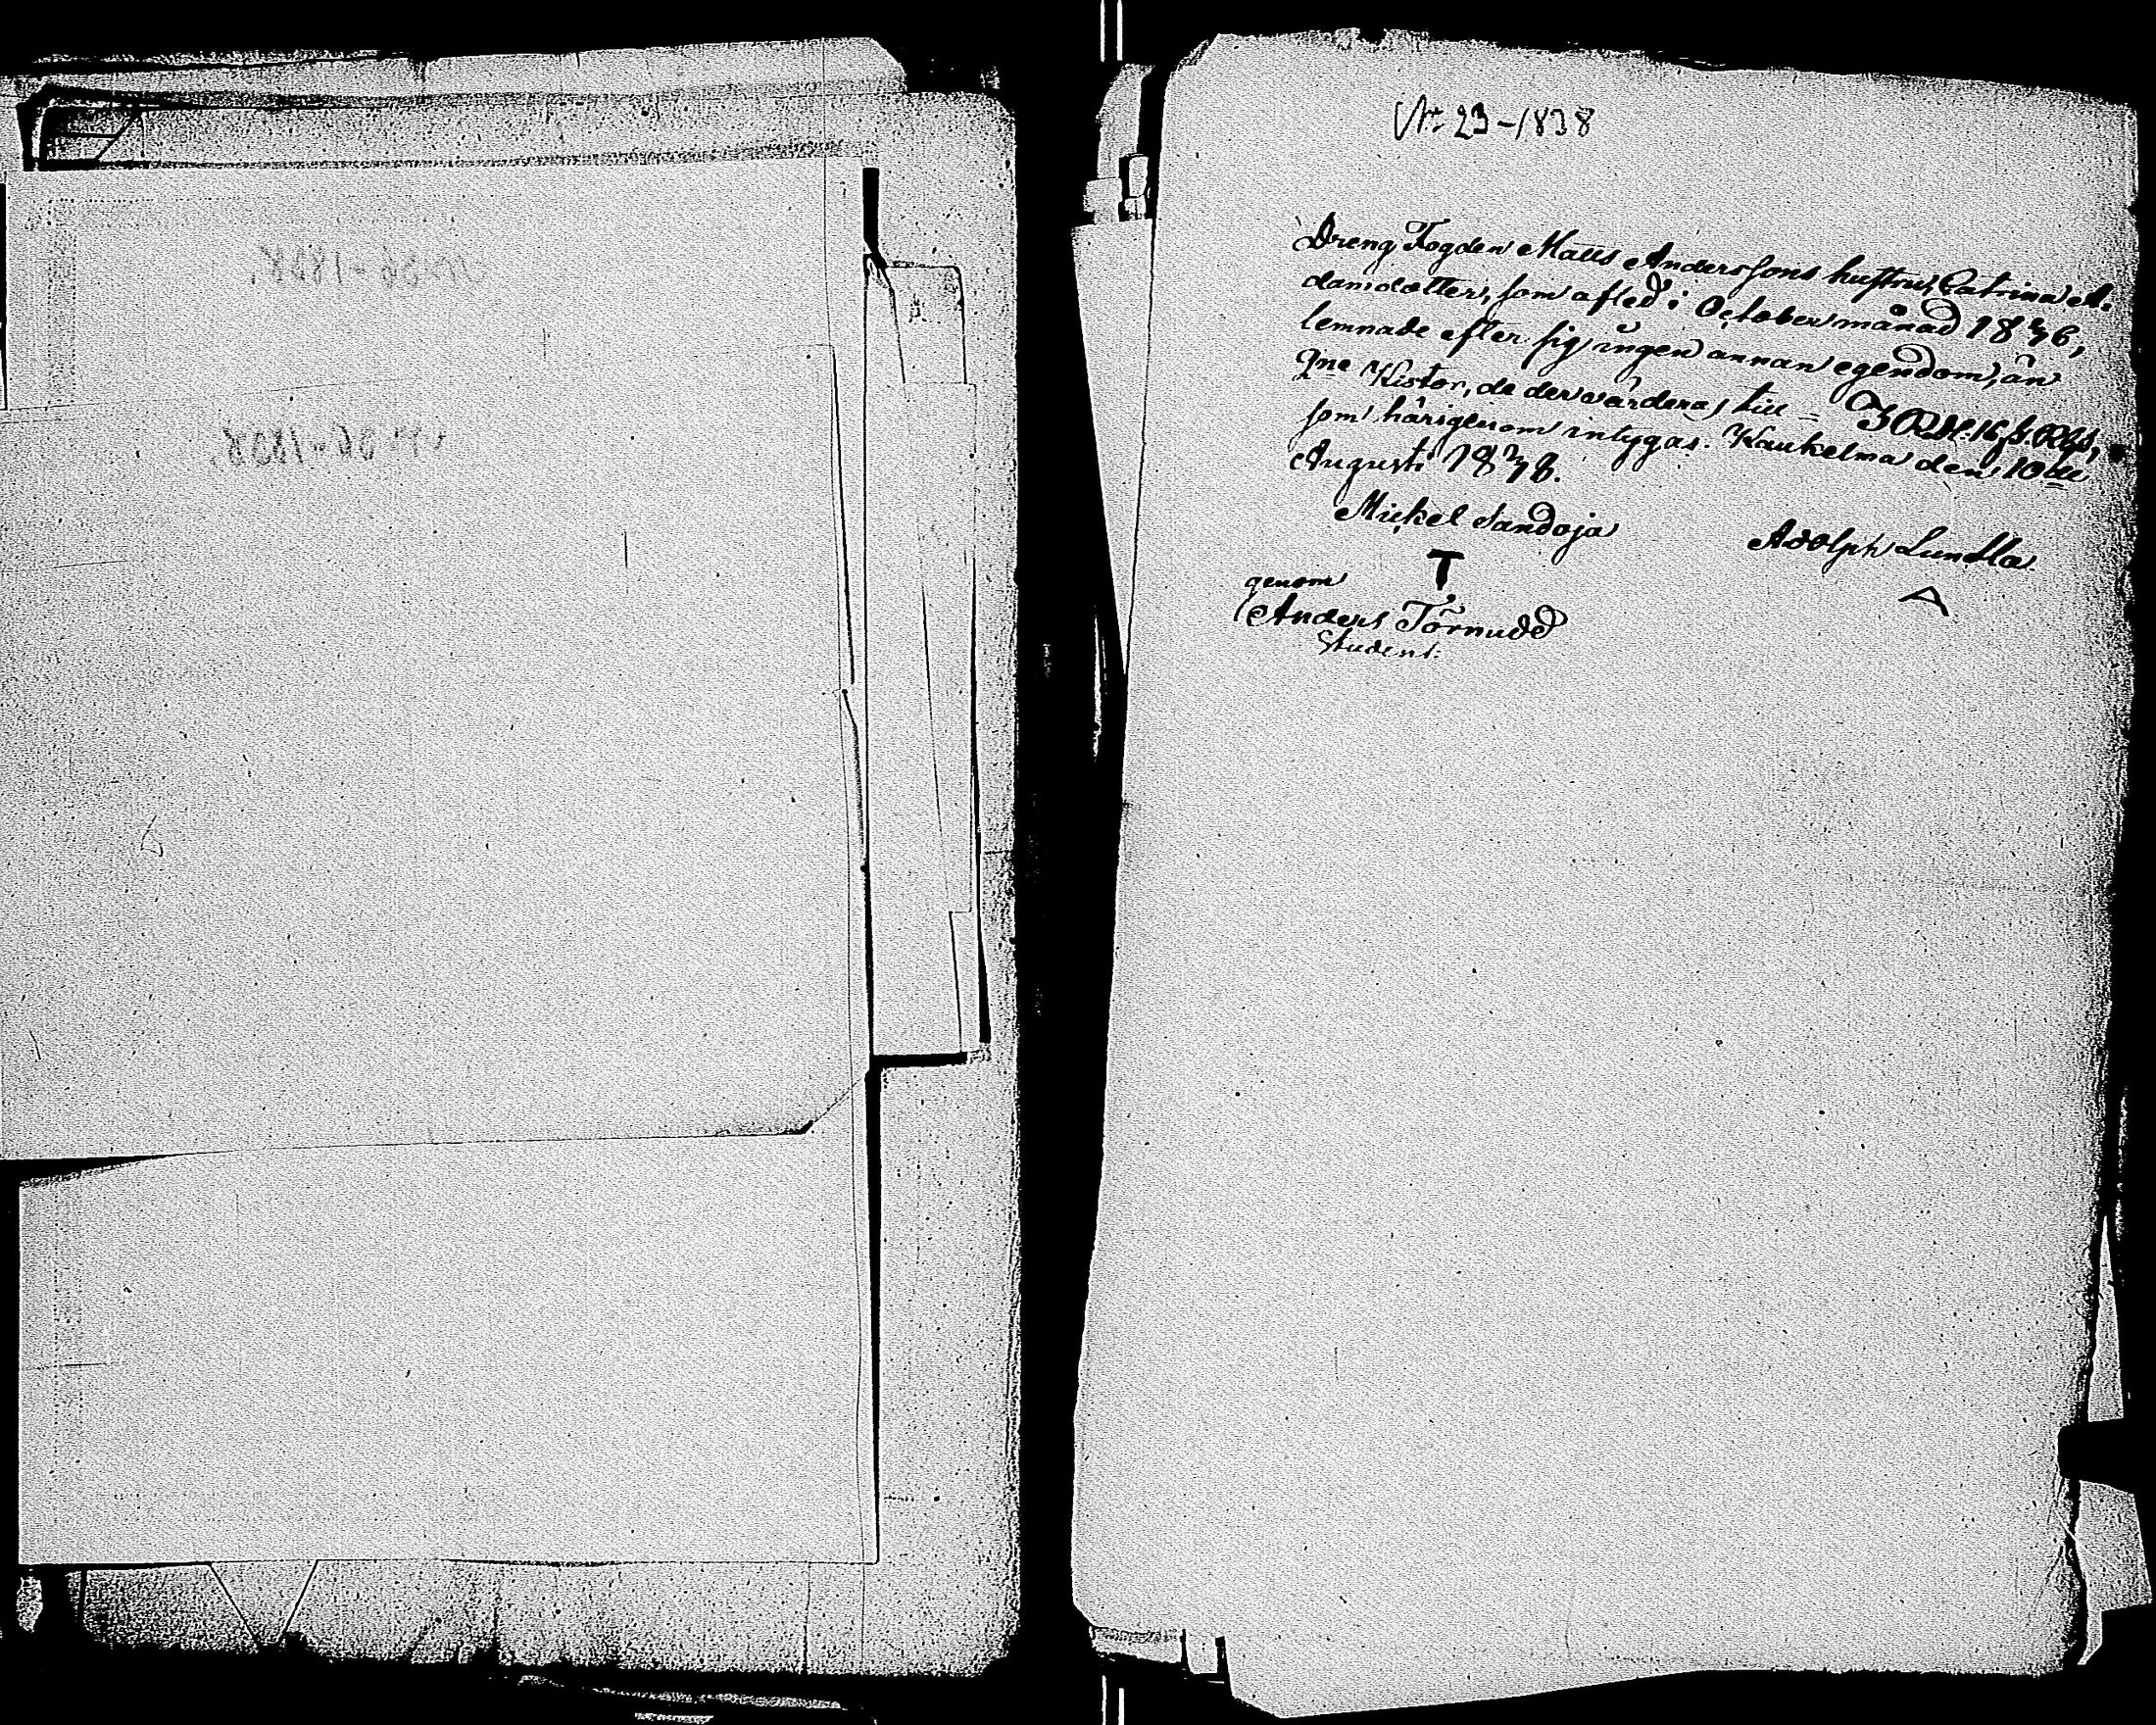 No 23-1838
Dreng Fogden Matts Anderssons hustru, Catrina A.
damsdotter, som afled i October månad 1836,
lemnade efter sig ingen annan egendom, än
Kistor, de der värderas till = 3 Rdl. 16 s. Rgs,
som härigenom intygas. Kaukelma den 10de
Augusti 1838.
Mickel Sandoja
Adolph Lundla
T
A
genom
Anders Törnudd
Student.